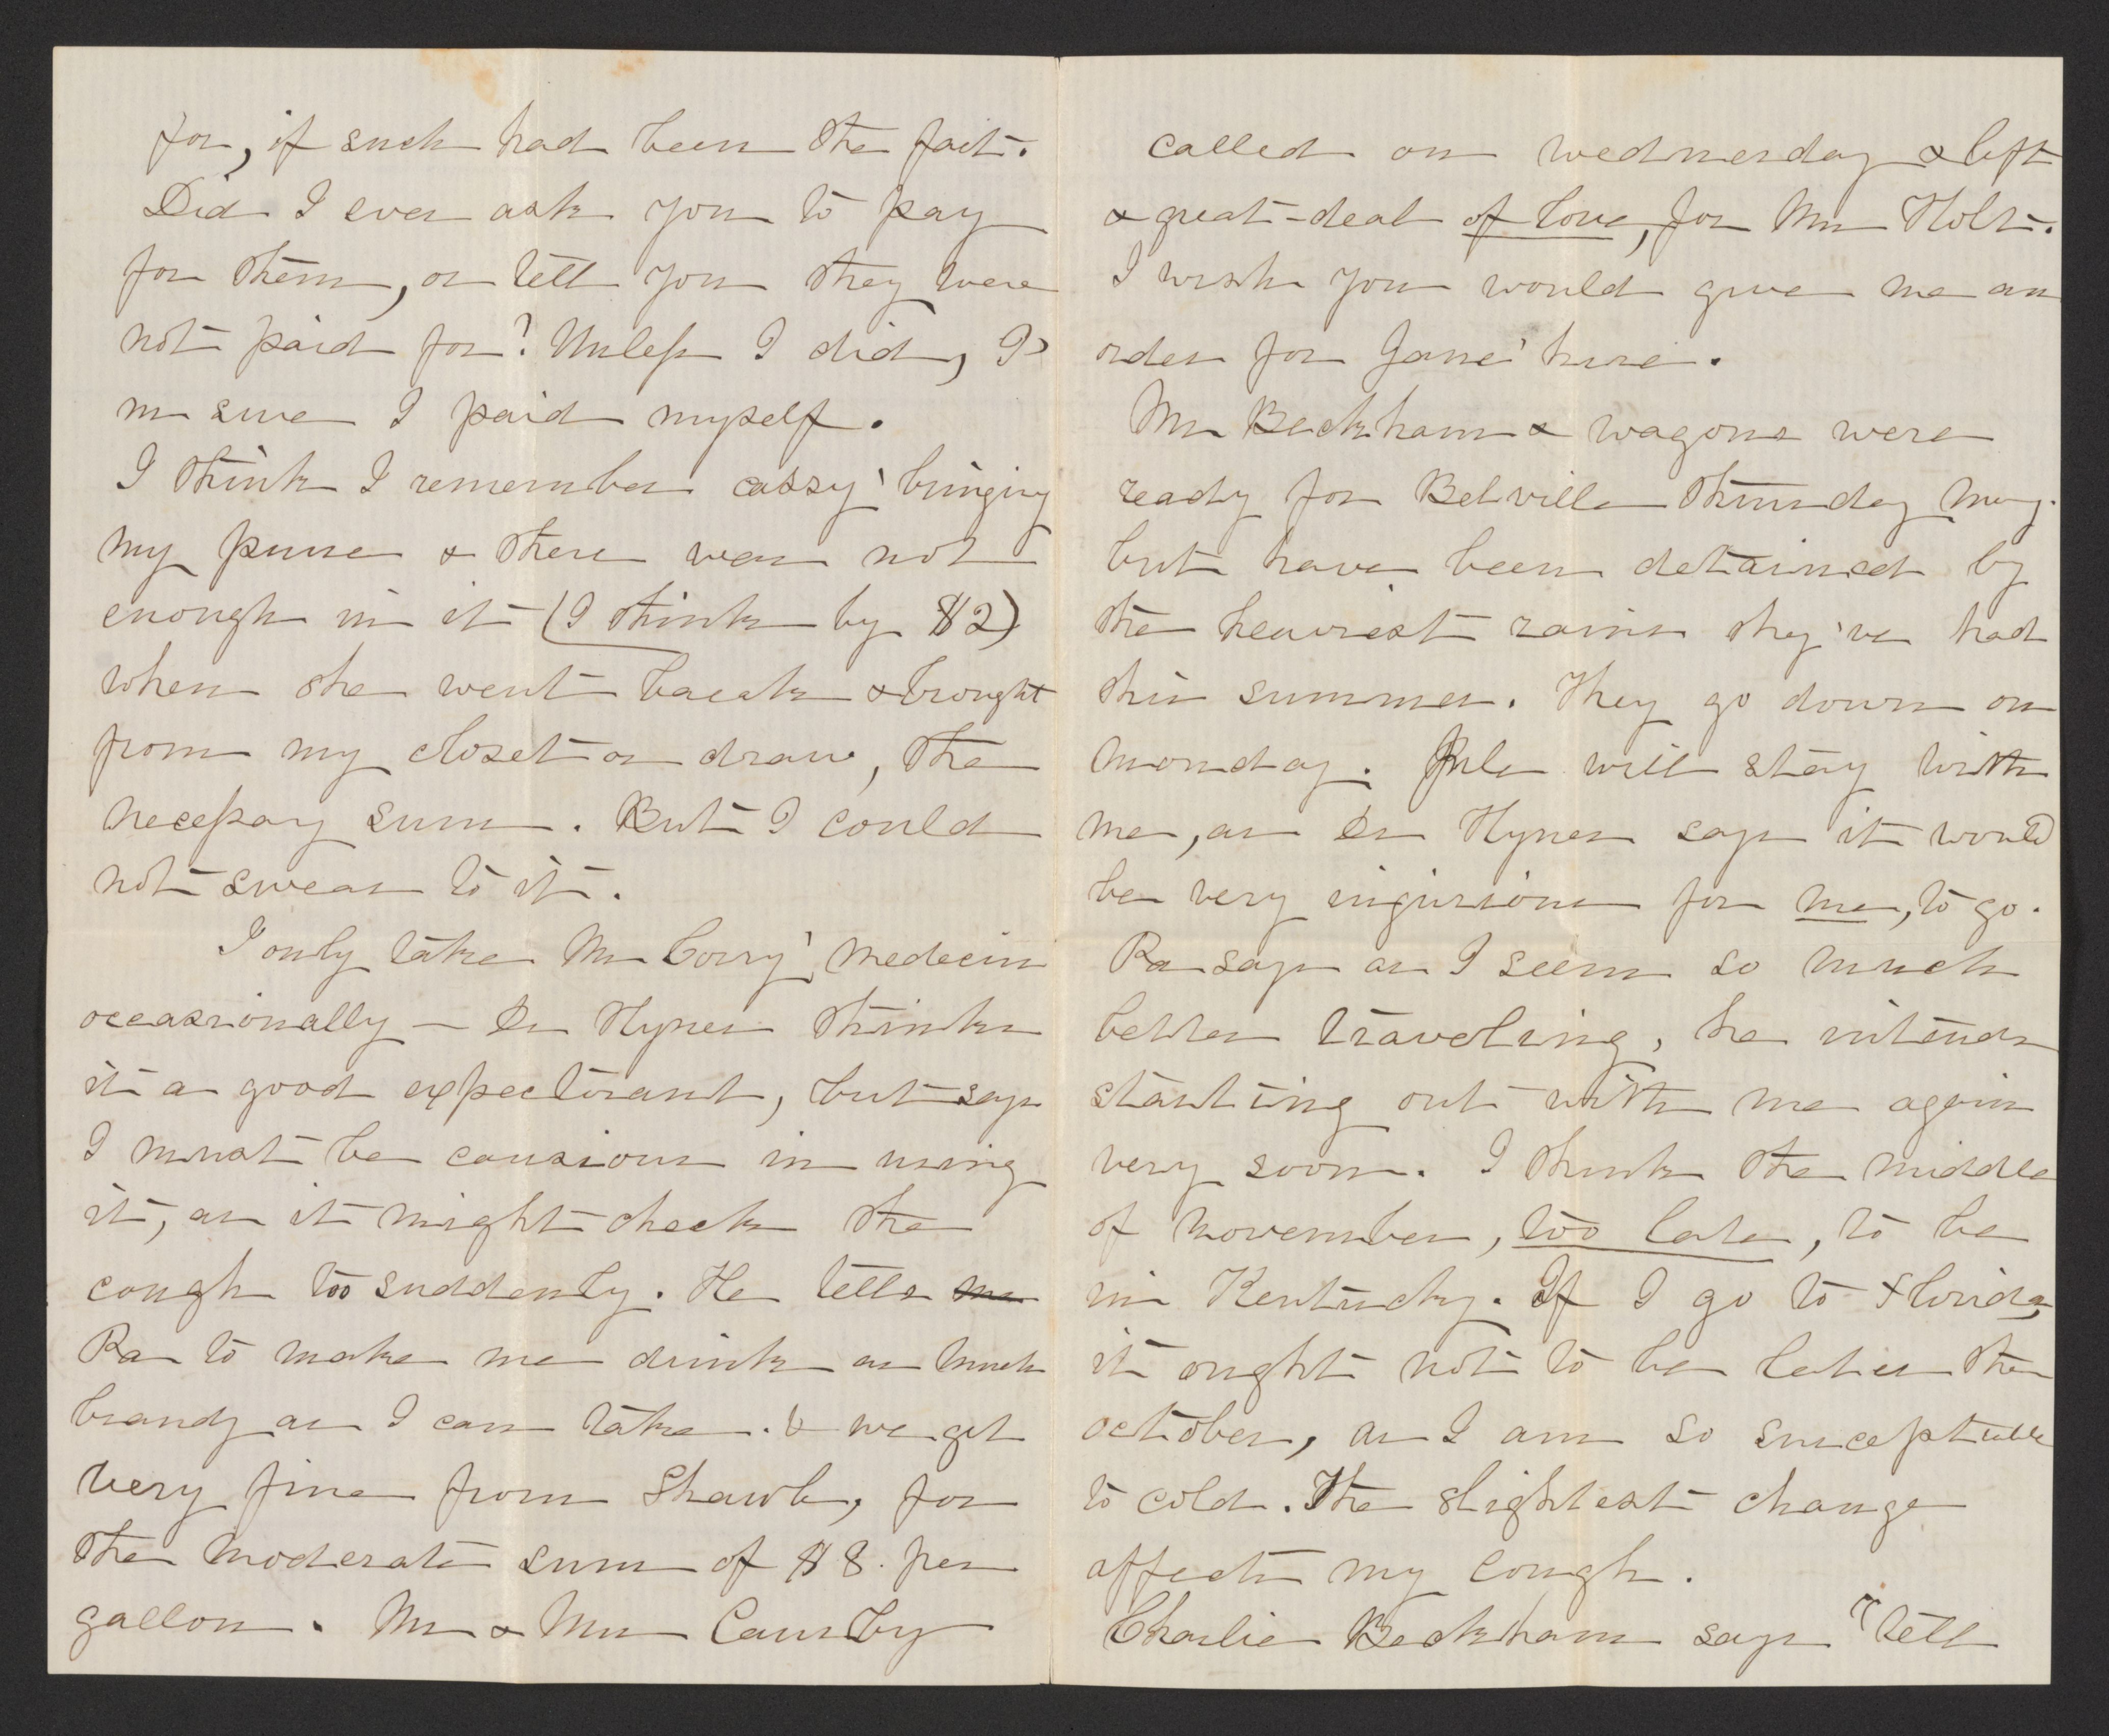 for, if such had been the fact.
Did I ever ask you to pay
for them, or tell you they were
not paid for? Unless I did, I'
m sure I paid myself.
I think I remember cassy' bringing
my purse & there was not
enough in it (I think by $2)
when she went back & brought
from my closet or draw, the
necessary sum. But I could
not swear to it.
I only take Mr Corry's medecin
occassionally - Dr Hynes thinks
it a good expectorant, but says
I must be causious in using
it, as it might check the
cough too suddenly. He tells me
Pa to make me drink as much
brandy as I can take. & we get
very fine from Shawb, for
the moderate sum of $8. per
gallon. Mr & Mrs Causby
called on wednesday & left
a great-deal of love, for Mr Holt.
I wish you would give me an
order for Jane' hire.
Mr Beckham & wagons were
ready for Belville Thursday Mng.
but have been detained by
the heaviest rains they've had
this summer. They go down on
monday. Jule will stay with
me, as Dr Hynes says it would
be very injurious for me, to go.
Pa says as I seem so much
better traveling, he intends
starting out with me again
very soon. I think the middle
of november, too late, to be
in Kentucky. If I go to Florida,
it ought not to be later the
october, as I am so susceptable
to cold. The slightest change
affects my cough.
Charlie Beckham says "tell